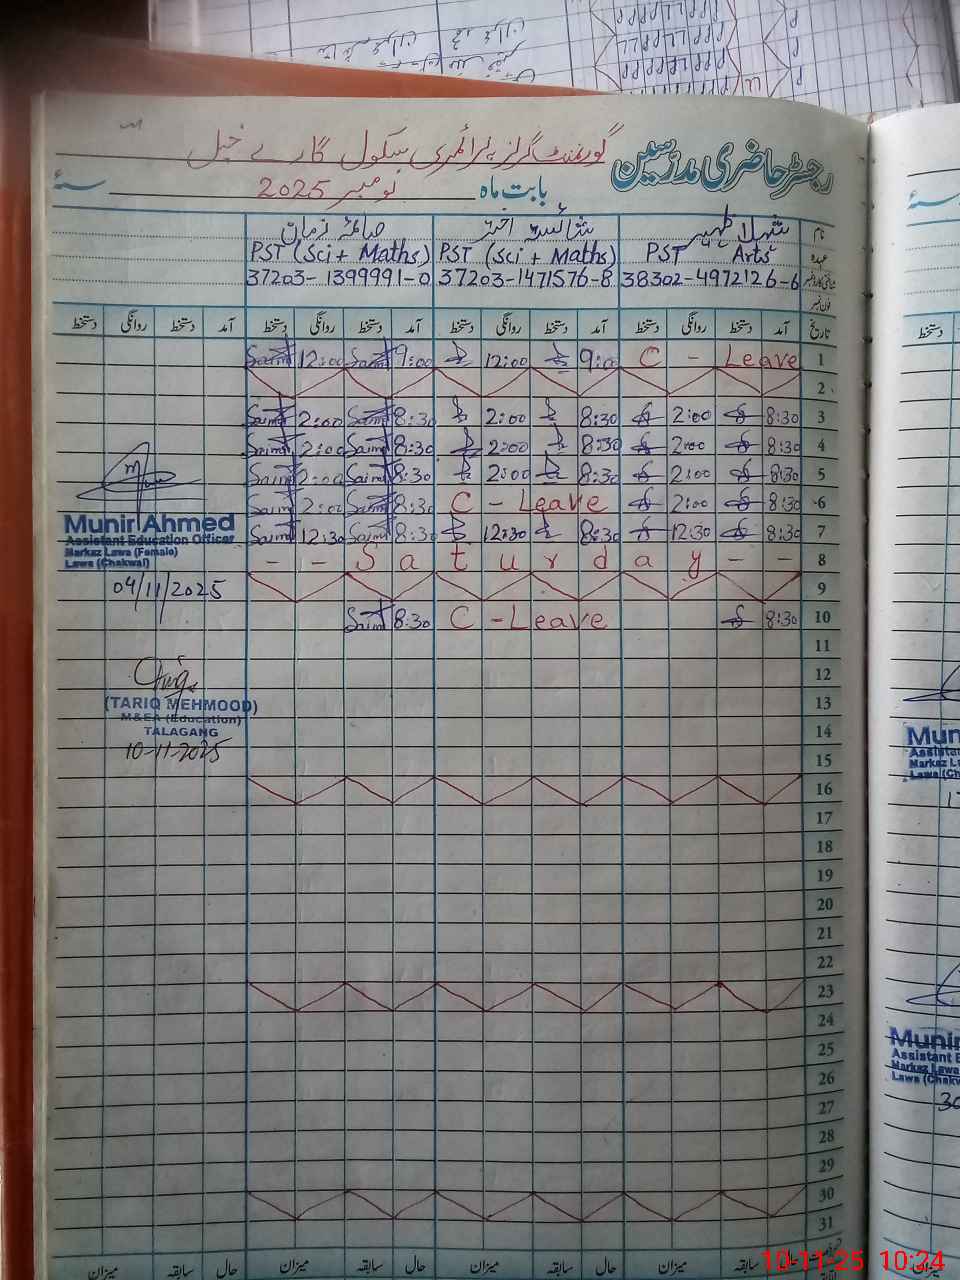 رجسٹر حاضری مدرسین
گورنمنٹ گرلز پرائمری سکول گارے خیل
بابت ماہ نومبر 2025 سنہ
نام شہلا ظہیر شائستہ اختر صائمہ زمان
عہدہ PST Arts PST (Sci + Maths) PST (Sci + Maths)
شناختی کارڈ نمبر 38302-4972126-6 37203-1471576-8 37203-1399991-0
فون نمبر
تاریخ آمد دستخط روانگی دستخط آمد دستخط روانگی دستخط آمد دستخط روانگی دستخط آمد دستخط روانگی دستخط
1 C - Leave 9:00 12:00 9:00 12:00
2
3 8:30 2:00 8:30 2:00 8:30 2:00
4 8:30 2:00 8:30 2:00 8:30 2:00
5 8:30 2:00 8:30 2:00 8:30 2:00
6 8:30 2:00 C - Leave 8:30 2:00
7 8:30 12:30 8:30 12:30 8:30 12:30
8 - - S a t u r d a y - -
9
10 8:30 C - Leave 8:30
11
12
13
14
15
16
17
18
19
20
21
22
23
24
25
26
27
28
29
30
31
حال سابقہ میزان حال سابقہ میزان حال سابقہ میزان حال سابقہ میزان
Munir Ahmed
Assistant Education Officer
Markaz Lawa (Female)
Lawa (Chakwal)
04/11/2025
(TARIQ MEHMOOD)
M&EA (Education)
TALAGANG
10-11-2025
دستخط
Assistant E
Markaz Lawa
Lawa (Chakw
میزان
10-11-25 10:24